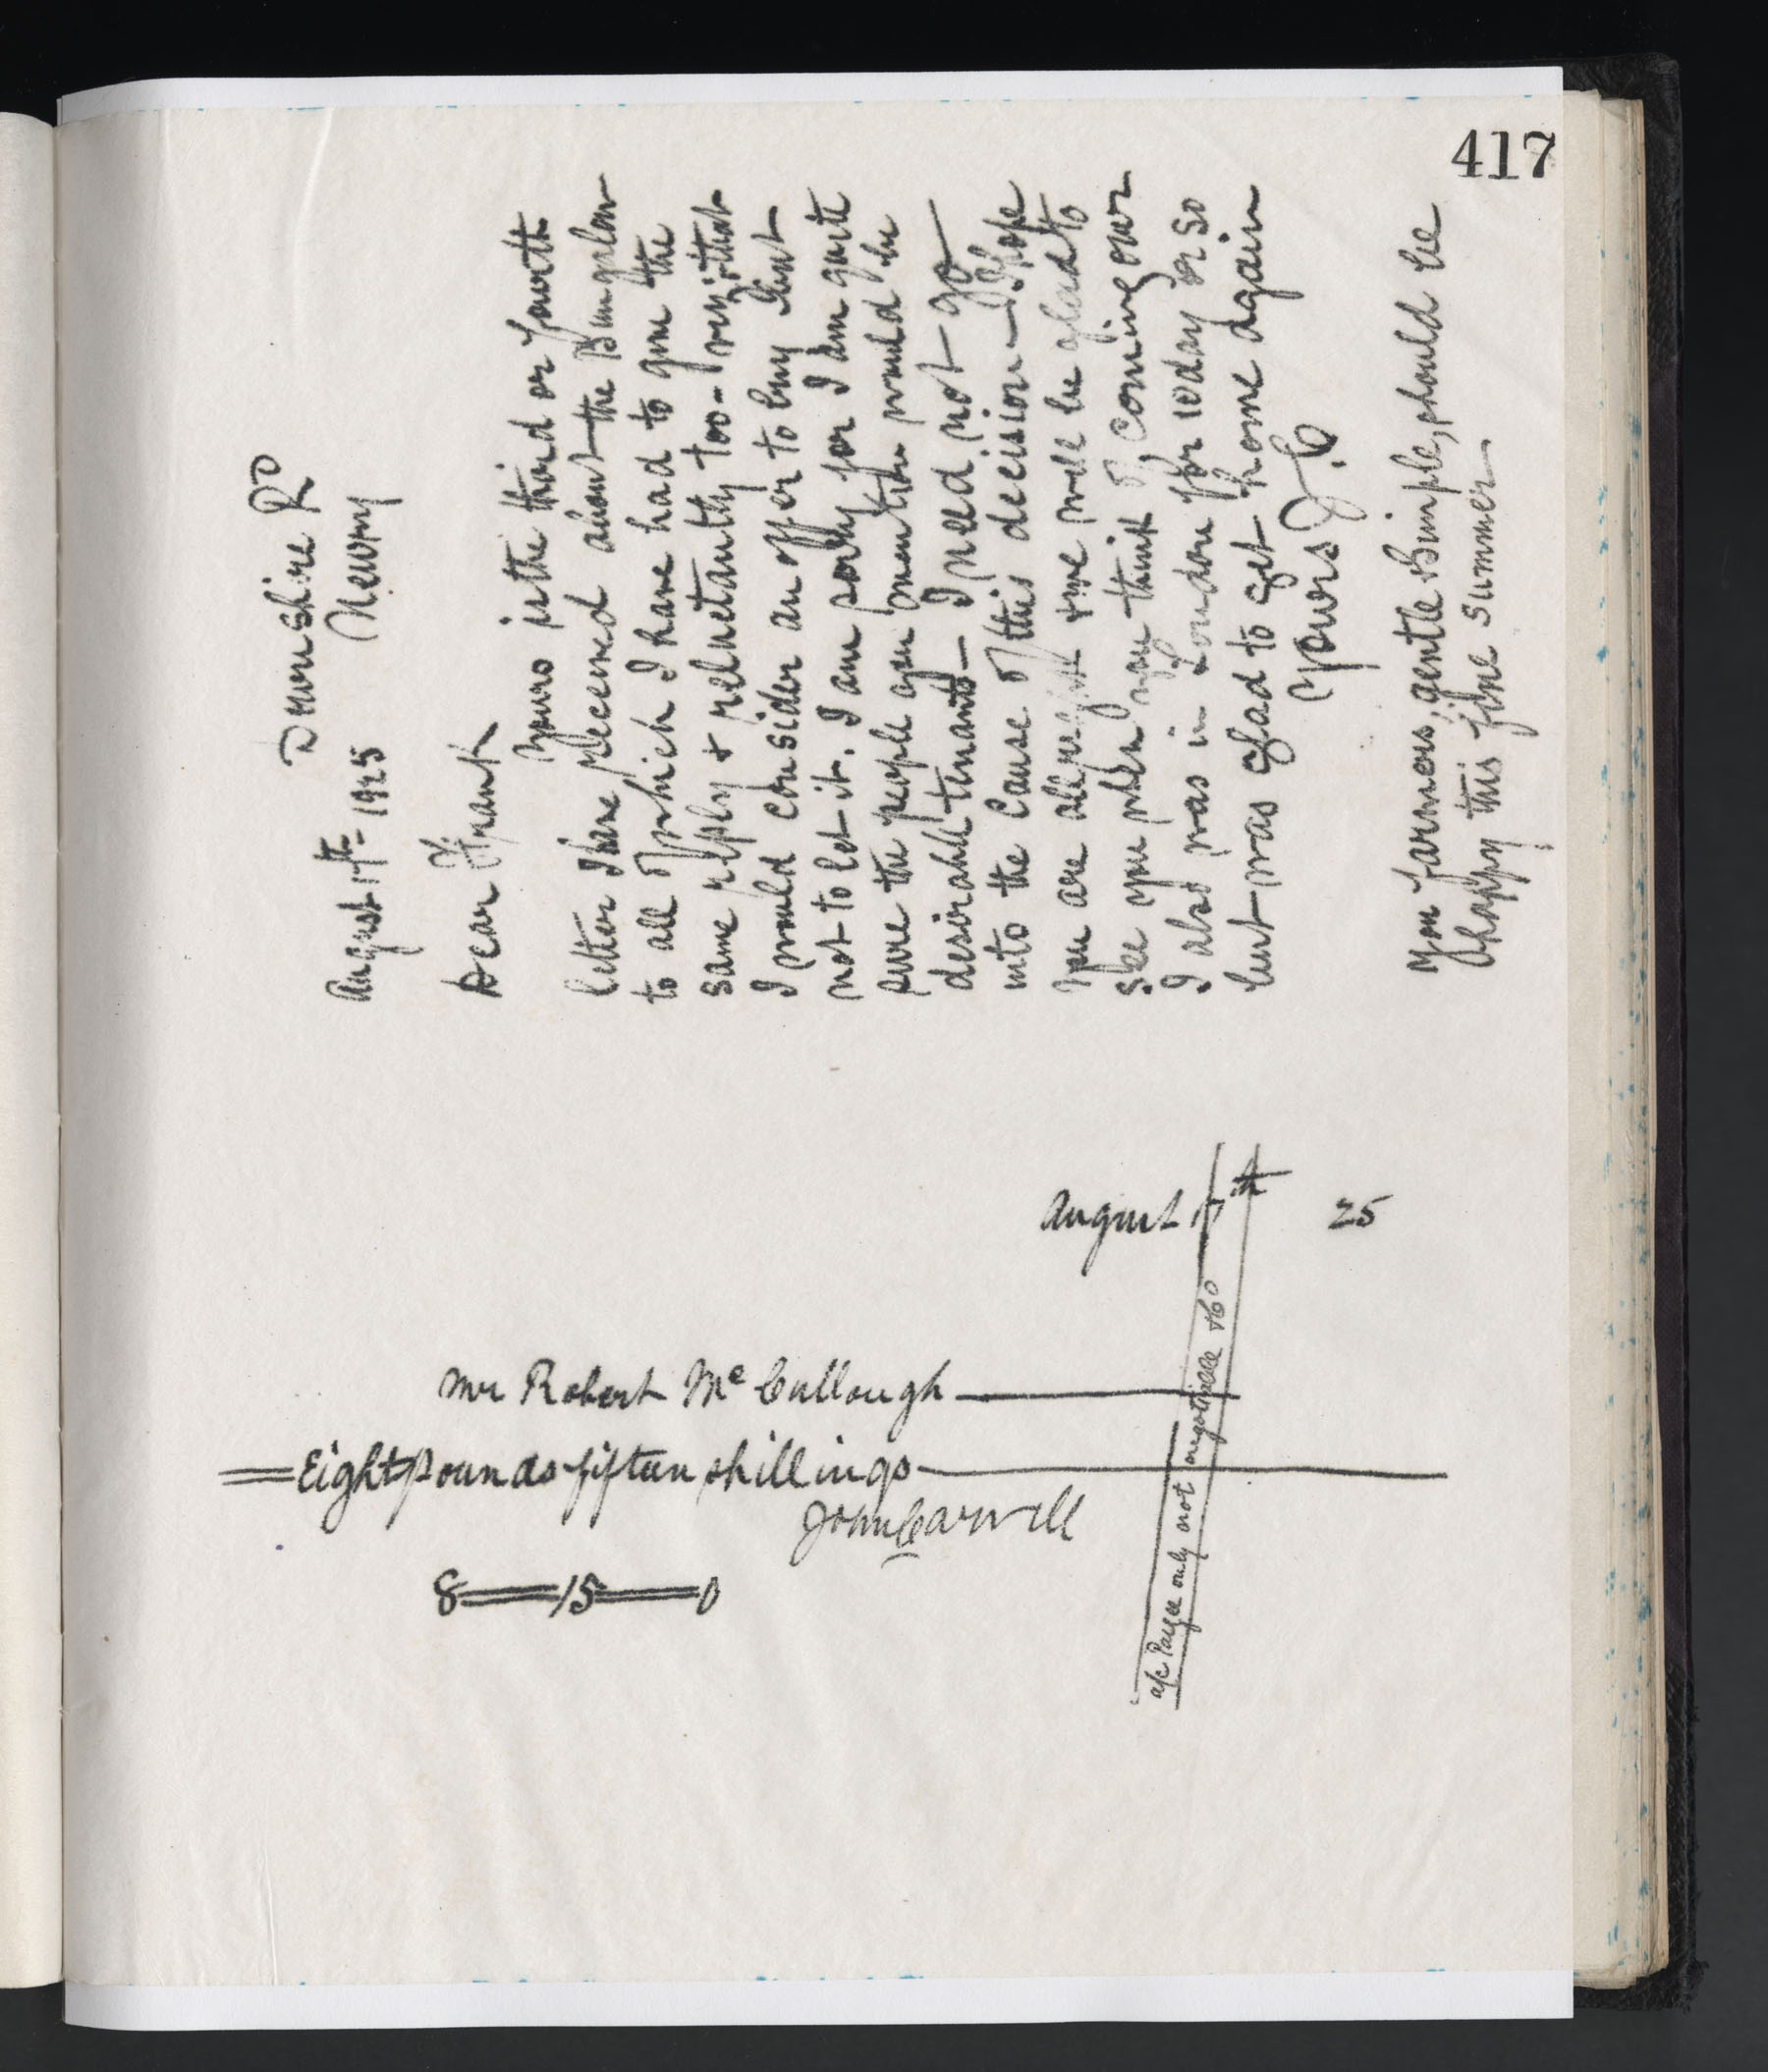 417
Downshire Rd
Newry
August 17th 1925
Dear Frank
Yours is the third or fourth
letter I have received about the Bungalow
to all of which I have had to give the
same reply & reluctantly too - viz: that
I would consider an offer to buy but
not to let it. I am sorry for I am quite
sure the people you mention would be
desirable tenants - I need not go
into the cause of this decision - I hope
you are all well & we will be glad to
see you when you think of coming over
I also was in London for 10 day or so
but was glad to get home again
Yours J.C
You farmers, gentle & simple, should be
happy this fine summer
August 17th 25
Mr Robert McCullough
Eight pounds fifteen shillings
John Carvill
8 = 15 = 0
a/c Payee only not negotiable & Co